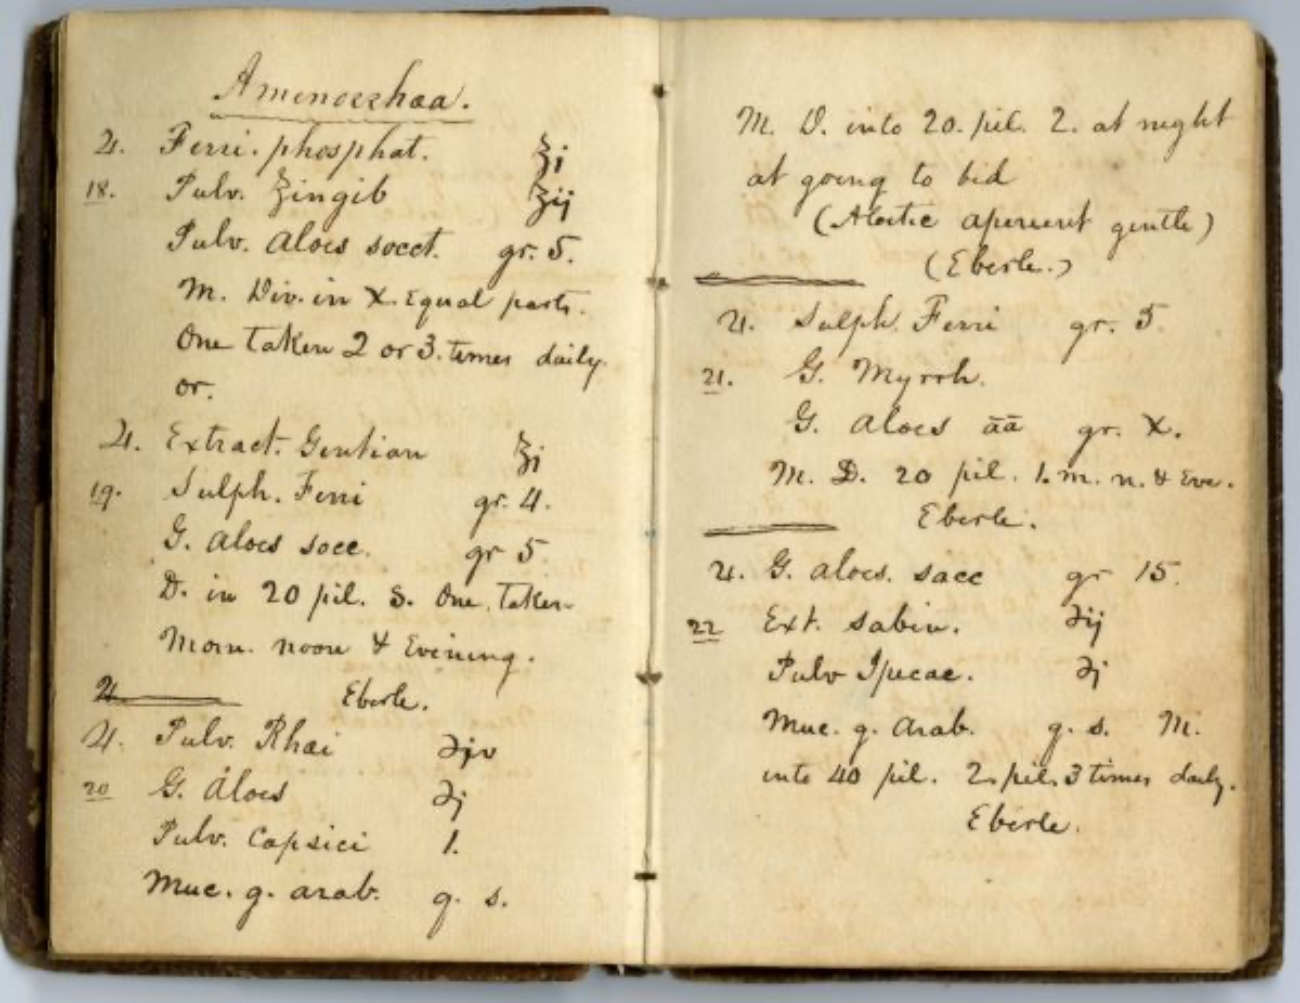 Amenorrhaa.
℞. Ferri. phosphat. ʒj
18. Pulv. Zingib ʒij
Pulv. Aloes socct. gr. 5.
M. Div. in X. Equal parts.
One taken 2 or 3. times daily.
or.
℞. Extract. Gentian ʒj
19. Sulph. Ferri gr. 4.
G. aloes socc. gr 5
D. in 20 pil. S. One. taken
Morn. noon & Evening.
Eberle.
℞. Pulv. Rhai ℈jv
20 G. Aloes ℈j
Pulv. Capsici 1.
Muc. g. arab. q. s.
M. D. into 20. pil. 2. at night
at going to bid
(Aloetic aperient gentle)
(Eberle.)
℞. Sulph. Ferri gr. 5.
21. G. Myrrh.
G. Aloes āā gr. X.
M. D. 20 pil. 1. m. n. & Eve.
Eberle.
℞. G. aloes. sacc gr 15.
22 Ext. Sabin. ℈ij
Pulv Ipecac. ℈j
Muc. g. Arab. q. s. M.
into 40 pil. 2. pil. 3 times daily.
Eberle.